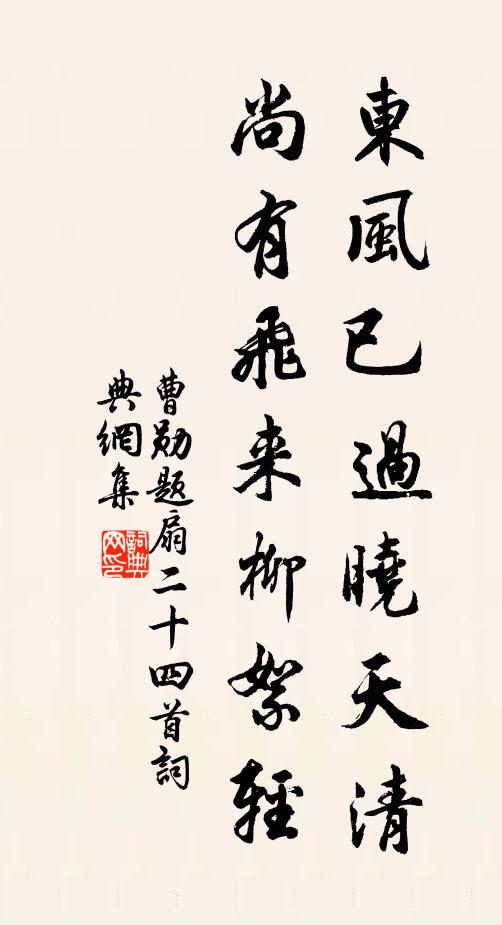 東風已過曉天清
尚有飛来柳絮輕
曹勛題扇二十四首詞
典網集
詞典网印